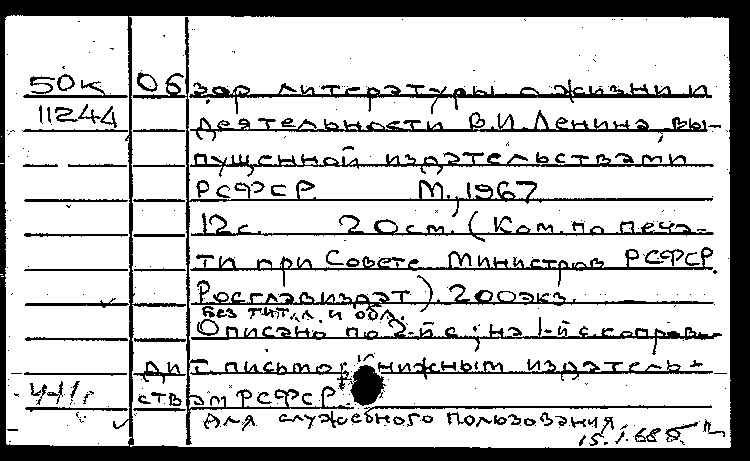 50к Обзор литературы о жизни и
11244 деятельности В.И.Ленина, вы-
пущенной издательствами
РСФСР. М., 1967.
12с. 20см. (Ком. по печа-
ти при Совете Министров РСФСР.
Росглавиздат). 200экз.
Без тит. л. и обл.
Описано по 2-й с.; на 1-й с. сопрово-
дит. письмо книжным издатель-
ствам РСФСР
Для служебного пользования
15.1.68